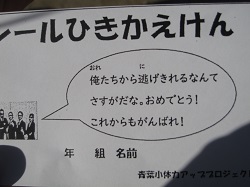 シールひきかえけん
おれ に
俺たちから逃げきれるなんて
さすがだな。おめでとう!
これからもがんばれ!
年 組 名前
青葉小体力アッププロジェク